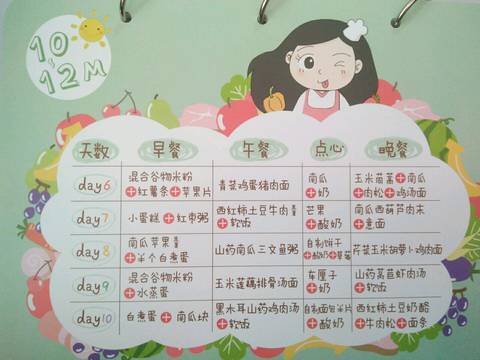 10
~
12M
天数 早餐 午餐 点心 晚餐
day6
混合谷物米粉
+红薯条+苹果片
青菜鸡蛋猪肉面
南瓜
+奶
玉米苗羹+南瓜
+肉松+鸡汤面
day7
小蛋糕+红枣粥
西红柿土豆牛肉煮
+软饭
芒果
+酸奶
南瓜西葫芦肉末
+意面
day8
南瓜苹果煮
+半个白煮蛋
山药南瓜三文鱼粥
自制饼干
+酸奶+草莓
芹菜玉米胡萝卜鸡肉面
day9
混合谷物米粉
+水蒸蛋
玉米莲藕排骨汤面
车厘子
+奶
山药莴苣虾肉汤
+软饭
day10
白煮蛋+南瓜块
黑木耳山药鸡肉汤
+软饭
自制面包半片
+酸奶
西红柿土豆奶酪
+牛肉松+面条